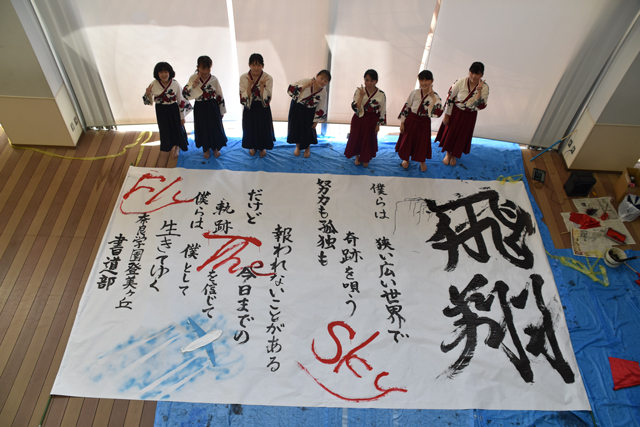 飛翔
僕らは 狭い広い世界で
奇跡を唄う
努力も孤独も
報われないことがある
だけど
今日までの
軌跡を信じて
僕らは 僕として
生きてゆく
奈良学園登美ヶ丘
書道部
Fly
The
Sky